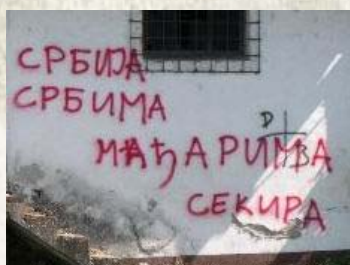 СРБИЈА
СРБИМА
МАЂАРИМА
СЕКИРА